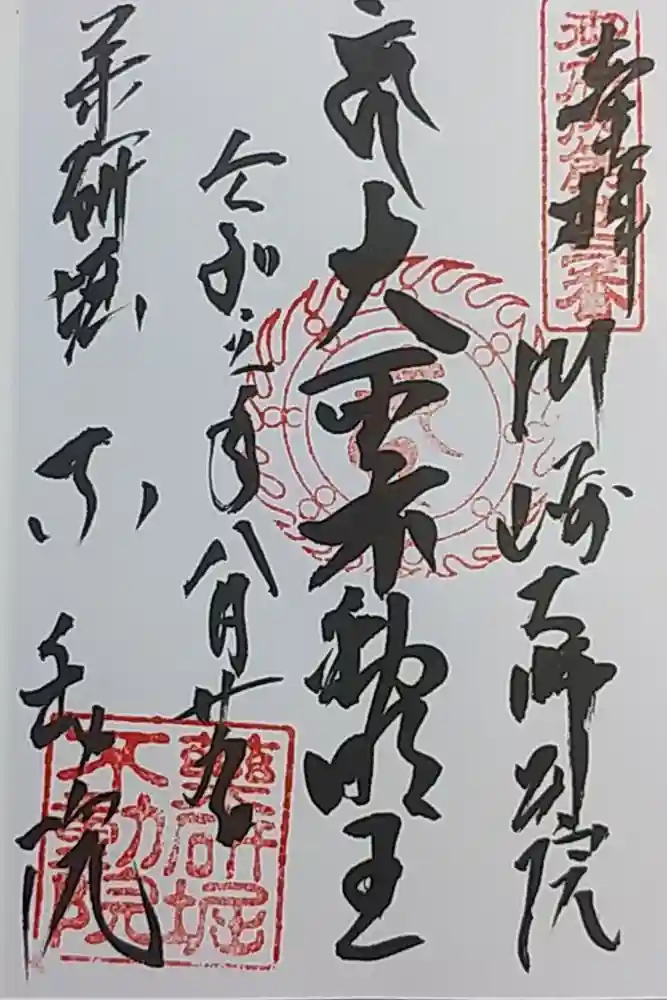 奉拝
川崎大師別院
大聖不動明王
令和六年八月廿九
薬研堀 不動院
薬研堀
不動院